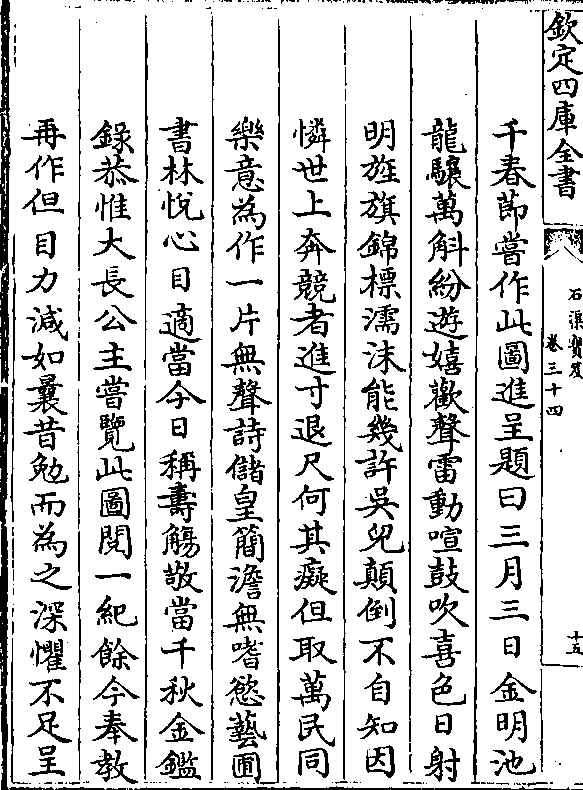 欽定四庫全書
石渠寶笈
卷三十四
十五
千春節嘗作此圖進呈題曰三月三日金明池
龍驤萬斛紛遊嬉歡聲雷動喧鼓吹喜色日射
明旌旗錦標濡沫能幾許吳兒顛倒不自知因
憐世上奔競者進寸退尺何其癡但取萬民同
樂意為作一片無聲詩儲皇簡澹無嗜慾藝圃
書林悅心目適當今日稱壽觴敬當千秋金鑑
錄恭惟大長公主嘗覽此圖閱一紀餘今奉教
再作但目力減如曩昔勉而為之深懼不足呈